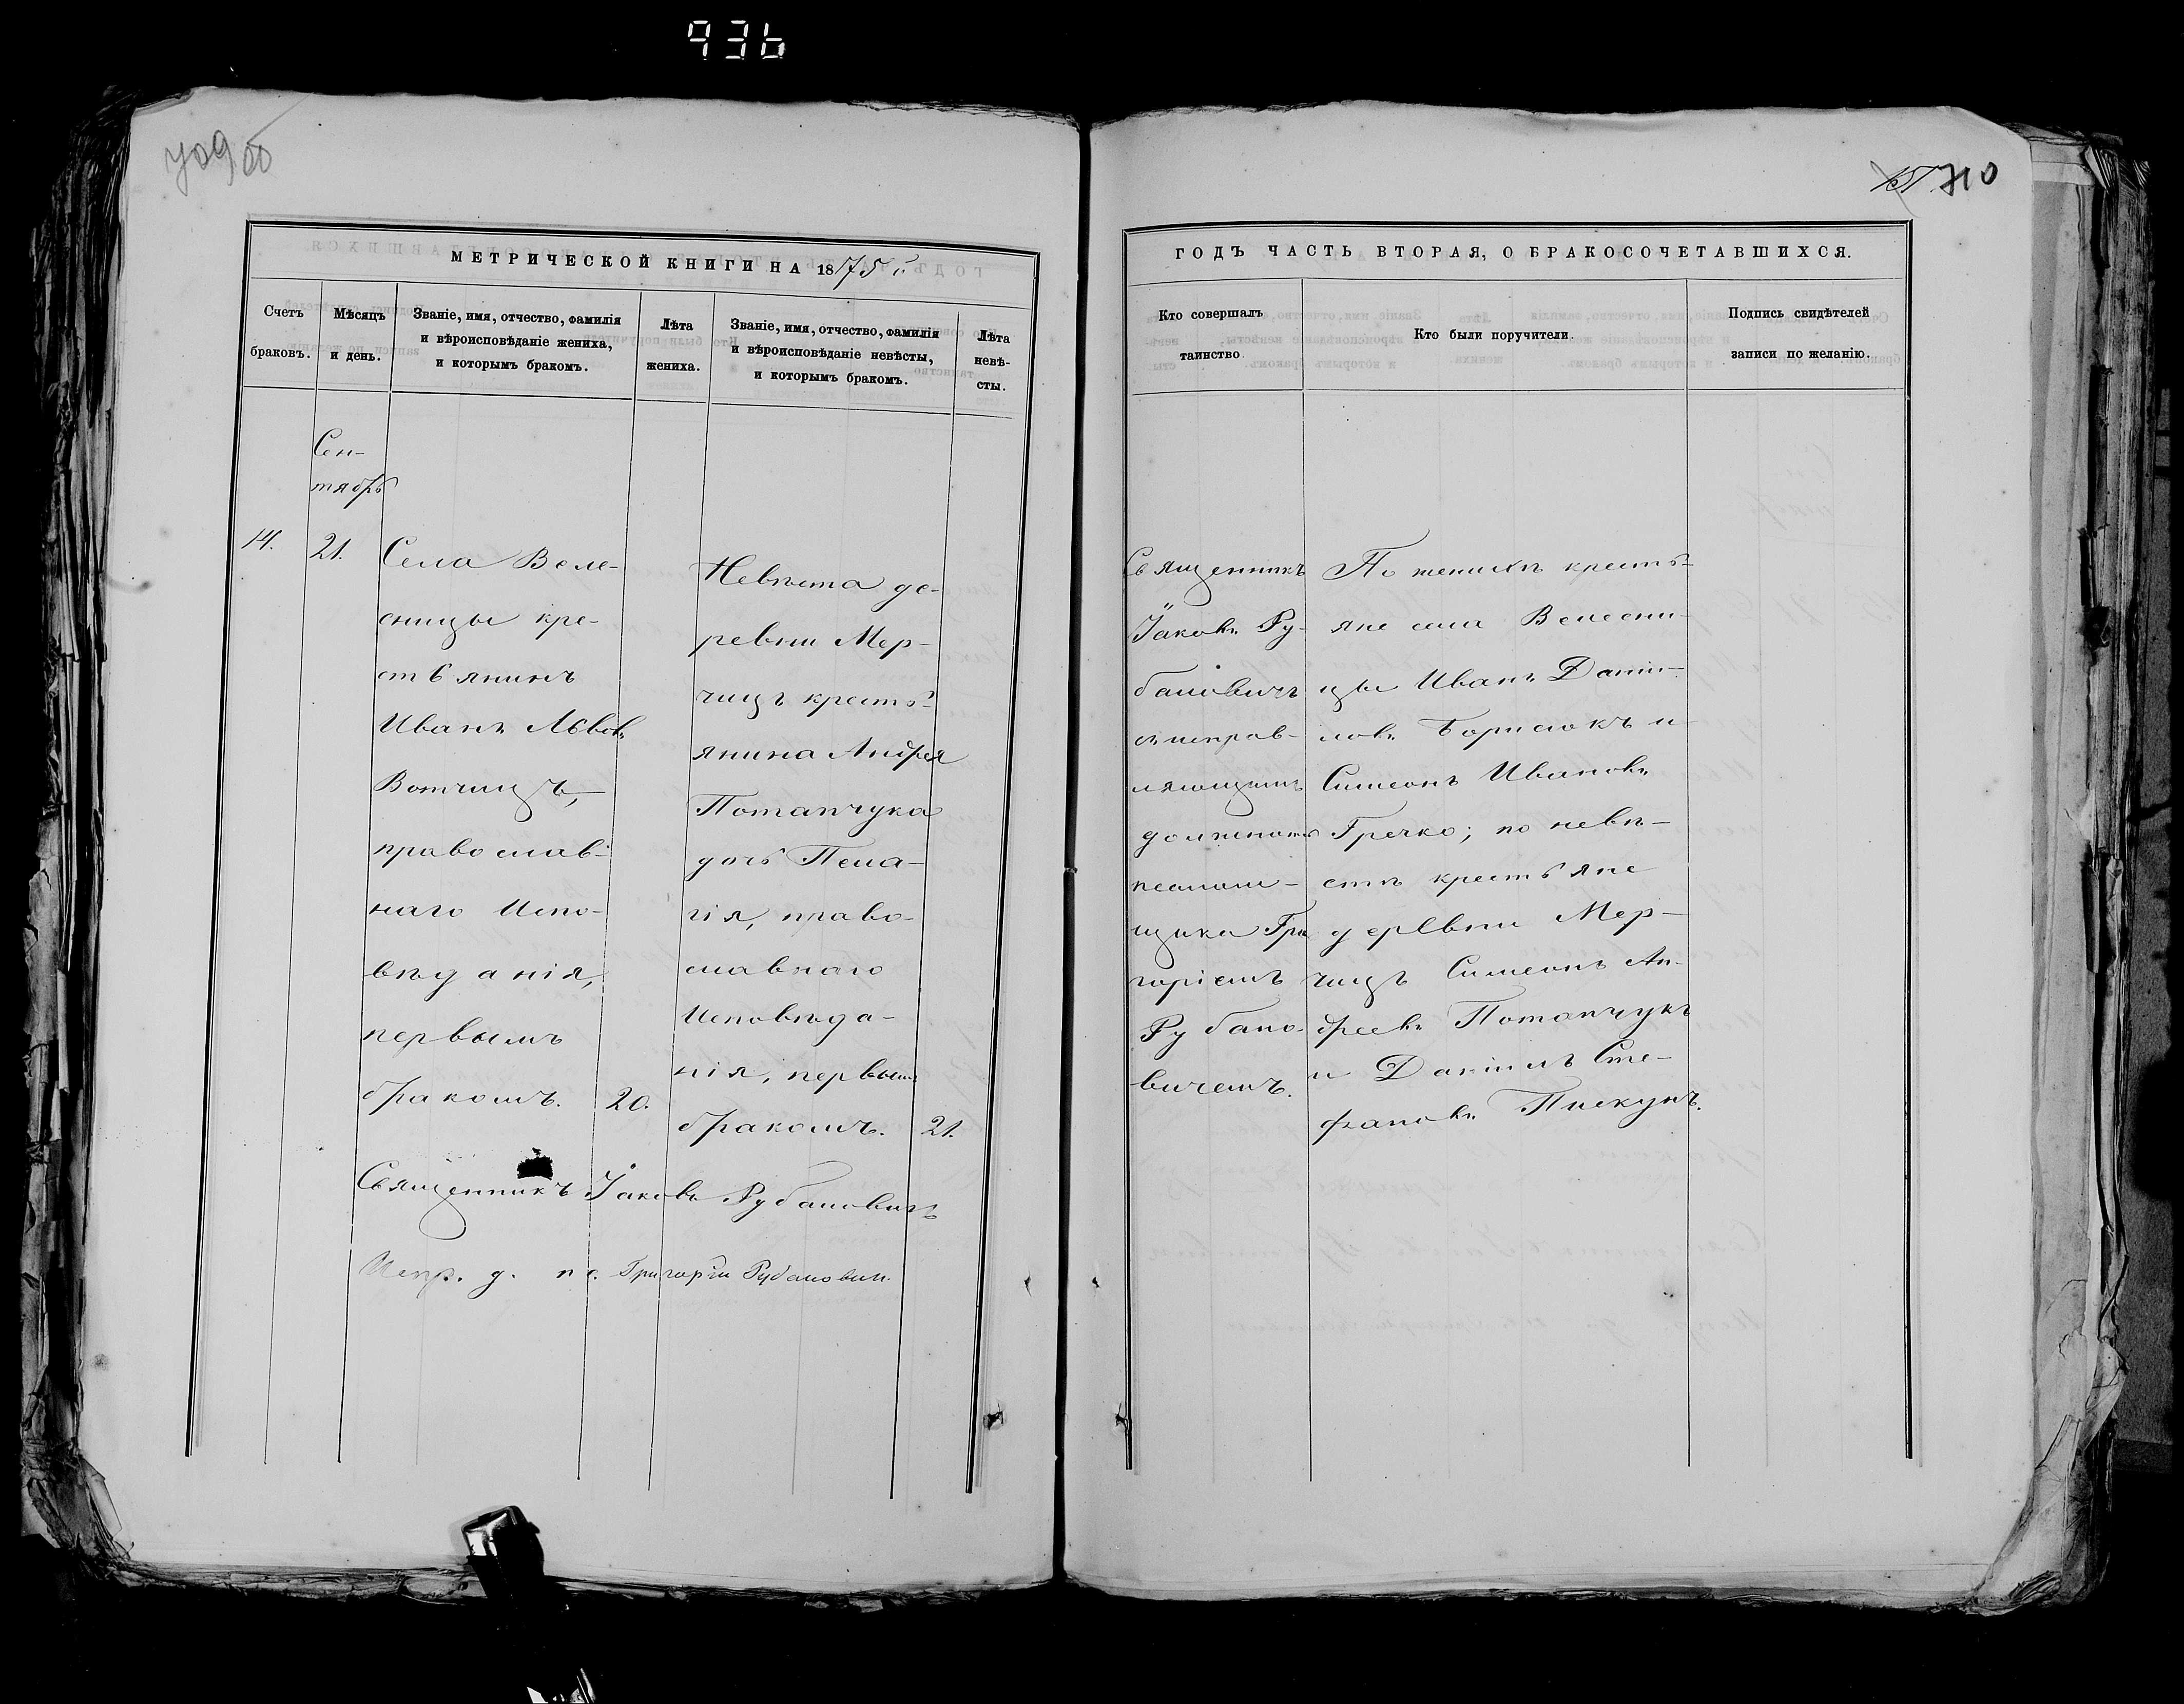 936
709 об
151 710
МЕТРИЧЕСКОЙ КНИГИ НА 1875й
Счетъ
браковъ.
Мѣсяцъ
и день.
Званіе, имя, отчество, фамилія
и вѣроисповѣданіе жениха,
и которымъ бракомъ.
Лѣта
жениха.
Званіе, имя, отчество, фамилія
и вѣроисповѣданіе невѣсты,
и которымъ бракомъ.
Лѣта
невѣ-
сты.
Сен-
тябрь
14.
21.
Села Веле-
сницы кре-
стьянинъ
Иванъ Львовъ
Вотчицъ,
православ-
наго испо-
вѣданія,
первымъ
бракомъ.
20.
Невѣста де-
ревни Мер-
чицъ кресть-
янина Андрея
Потапчука
дочь Пела-
гія, право-
славнаго
исповѣда-
нія, первымъ
бракомъ.
21.
Священникъ Іаковъ Рубановичъ
Испр. д. пс. Григорій Рубановичъ
ГОДЪ ЧАСТЬ ВТОРАЯ, О БРАКОСОЧЕТАВШИХСЯ.
Кто совершалъ
таинство.
Кто были поручители.
Подпись свидѣтелей
записи по желанію.
Священникъ
Іаковъ Ру-
бановичъ
съ исправ-
ляющимъ
должность
псаломщ-
щика Гри
горіемъ
Рубано-
вичемъ.
По женихѣ кресть-
яне села Велесни-
цы Иванъ Дани-
ловъ Борисюкъ и
Симеонъ Ивановъ
Гречко; по невѣ-
стѣ крестьяне
деревни Мер-
чицъ Симеонъ Ан-
дреевъ Потапчукъ
и Даніилъ Сте-
фановъ Пискунъ.